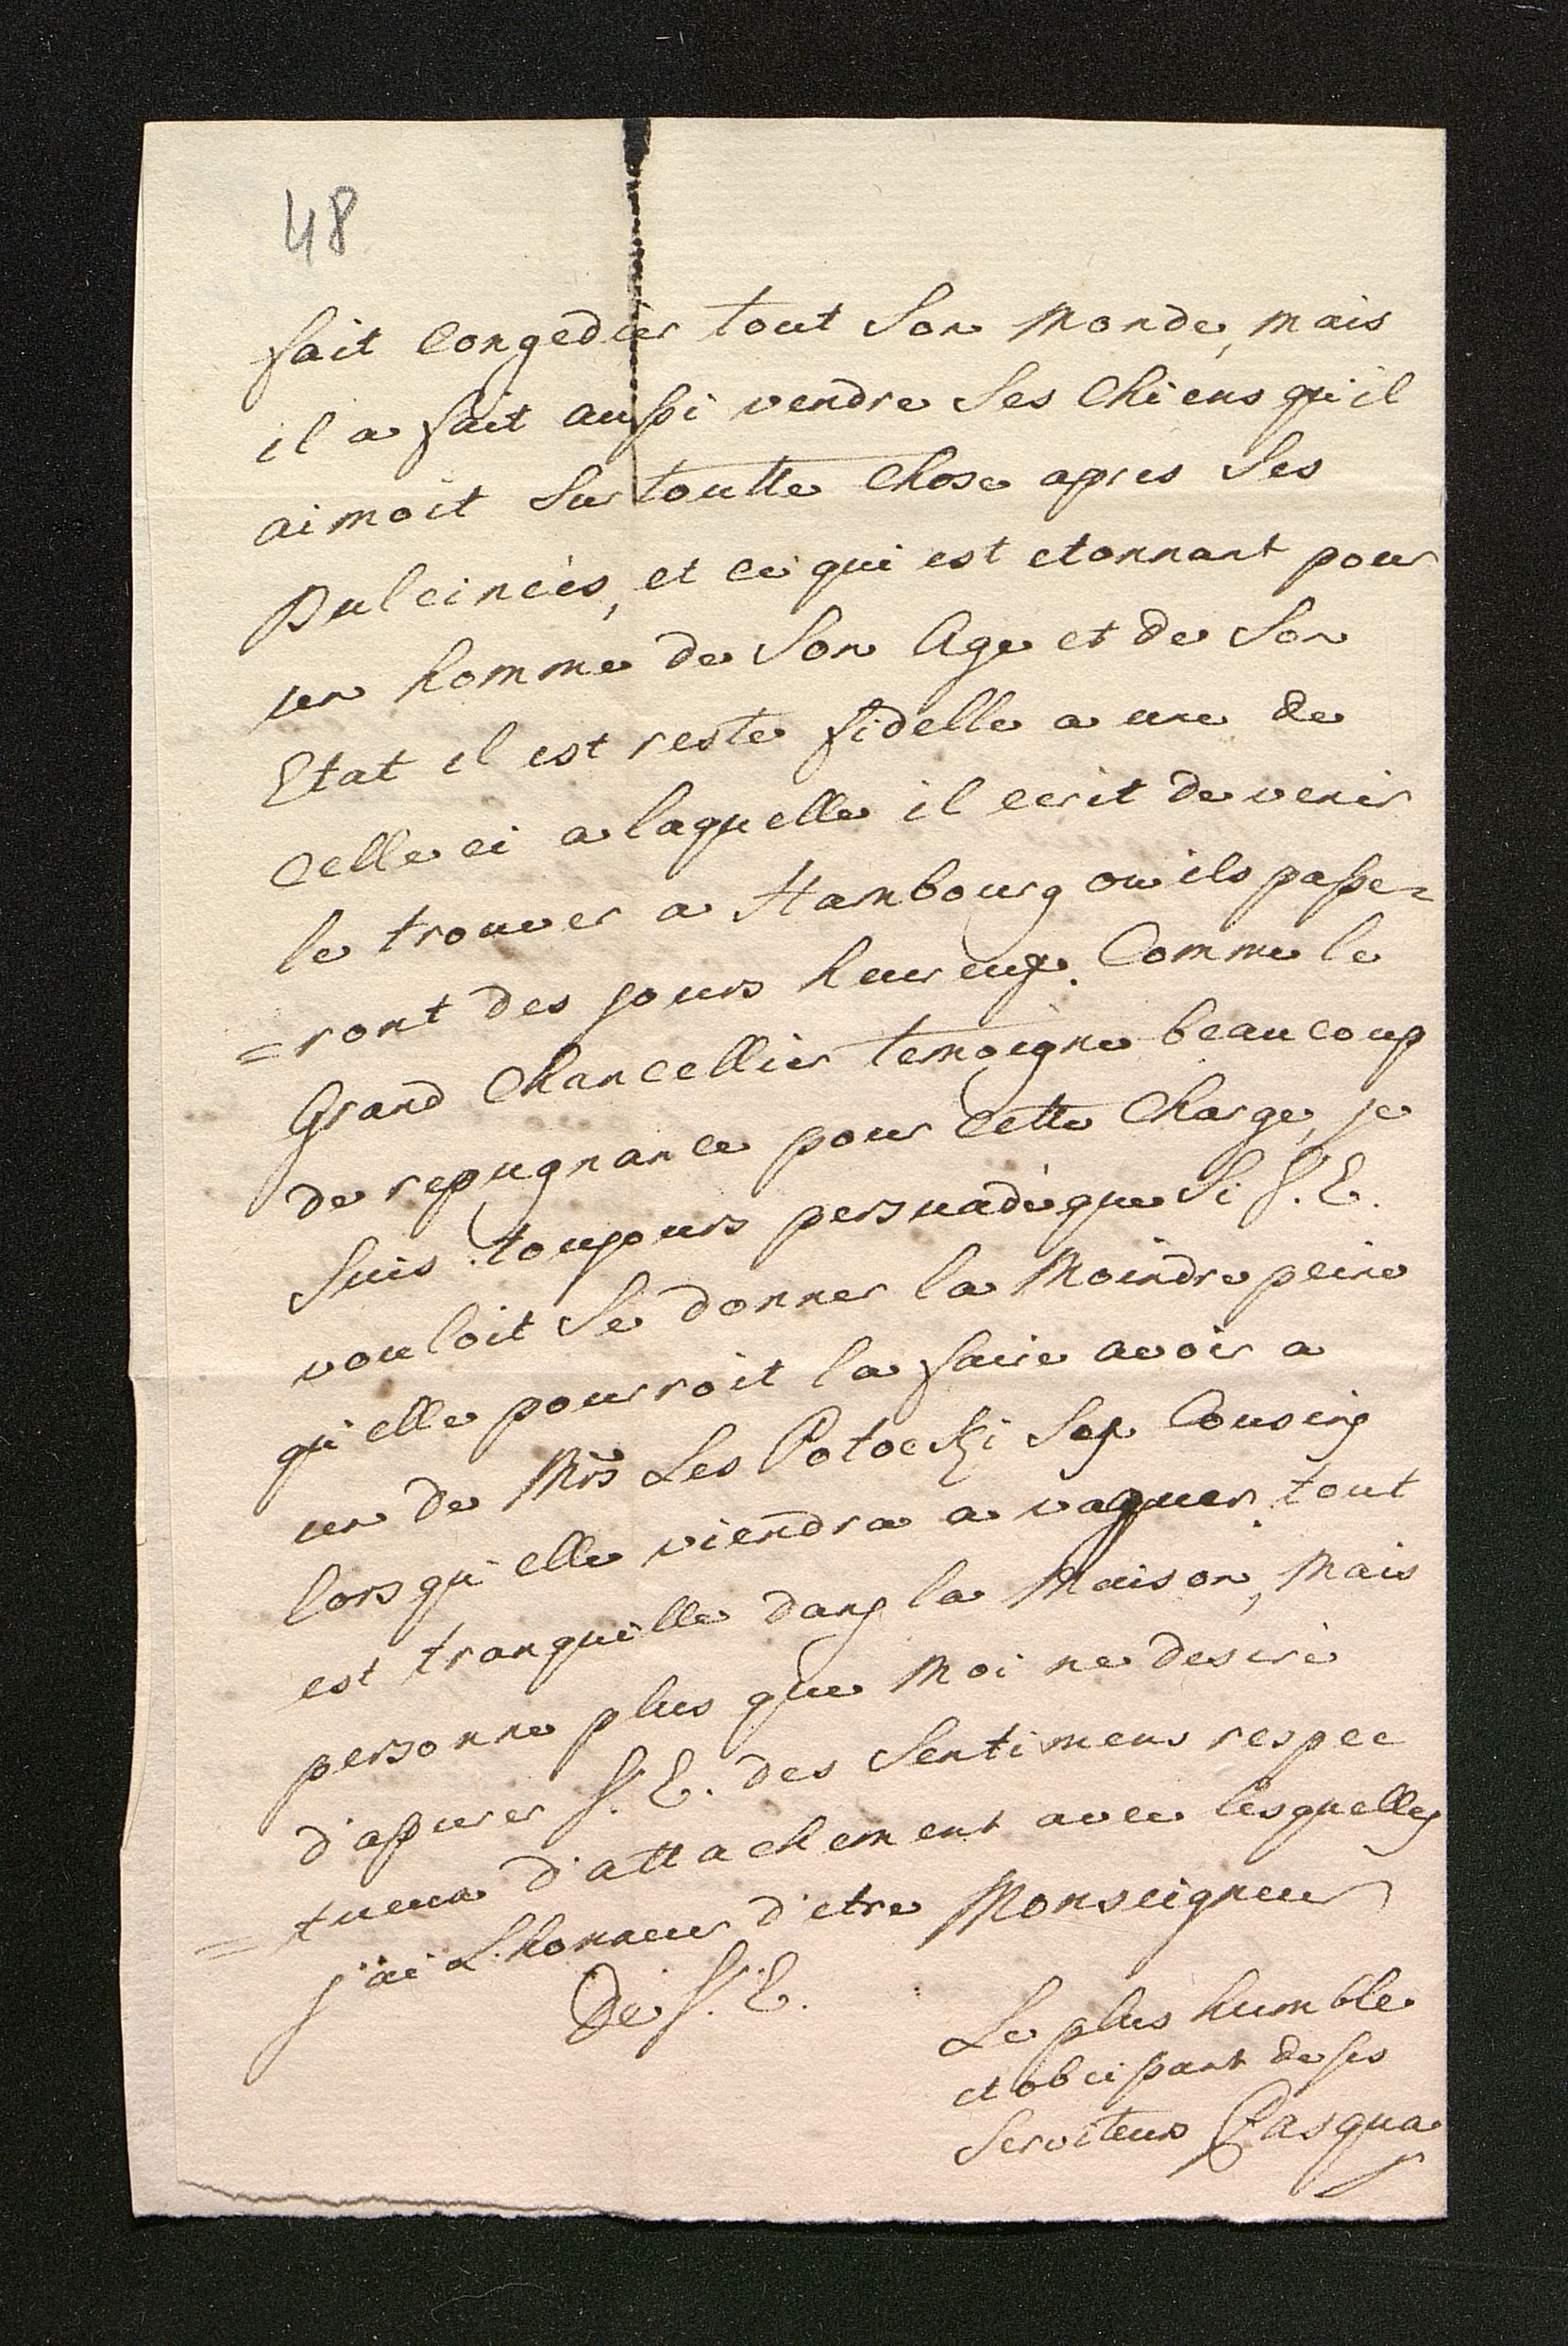 48
fait congedier tout Son Monde, mais
il a fait aussi vendre Ses Chiens qu'il
aimoit Sur toutte Chose apres Ses
Dulcinées, et ce qui est etonnant pour
un homme de Son Age et de Son
Etat il est reste fidelle a une de
Celle ci a laquelle il ecrit de venir
le trouver a Hambourg ou ils passe=
=ront des jours heureux. Comme le
Grand Chancellier temoigne beaucoup
de repugnance pour Cette Charge, je
Suis toujours persuadé que Si S. E.
vouloit Se donner la Moindre peine
qu'elle pourroit la faire avoir a
un de Mrs Les Potocki Ses Cousins
lors qu'elle viendra a vaquer. tout
est tranquille dans la Maison, Mais
personne plus que Moi ne desire
d'assurer S. E. des Sentimens respec
=tueux d'attachement avec lesquelles
j'ai L'honneur d'etre Monseigneur
De S. E.
Le plus humble
et obeissant de ses
Serviteurs Pasqua